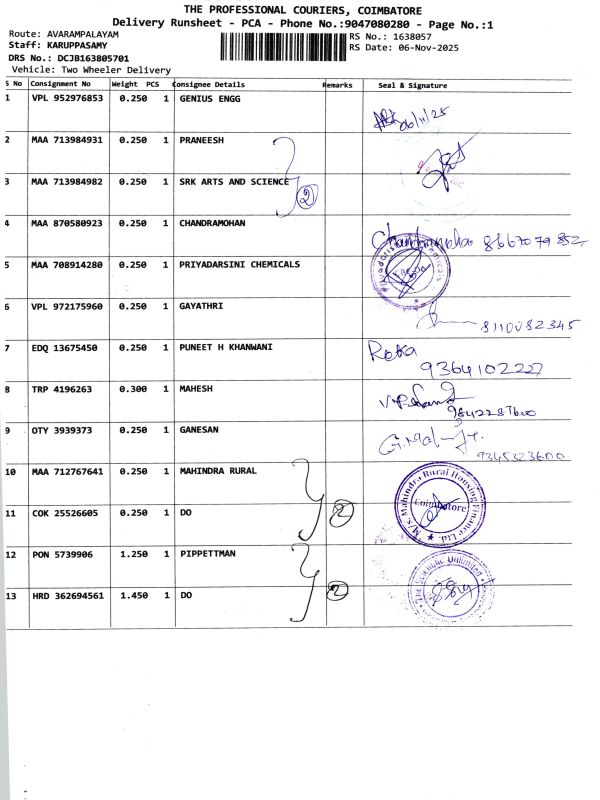 THE PROFESSIONAL COURIERS, COIMBATORE
Delivery Runsheet - PCA - Phone No.:9047080280 - Page No.:1
Route: AVARAMPALAYAM
RS No.: 1638057
Staff: KARUPPASAMY
RS Date: 06-Nov-2025
DRS No.: DCJB163805701
Vehicle: Two Wheeler Delivery
S No Consignment No Weight PCS Consignee Details Remarks Seal & Signature
1 VPL 952976853 0.250 1 GENIUS ENGG 06/11/25
2 MAA 713984931 0.250 1 PRANEESH
3 MAA 713984982 0.250 1 SRK ARTS AND SCIENCE 2
4 MAA 870580923 0.250 1 CHANDRAMOHAN 8667079852
5 MAA 708914280 0.250 1 PRIYADARSINI CHEMICALS
6 VPL 972175960 0.250 1 GAYATHRI 8110082345
7 EDQ 13675450 0.250 1 PUNEET H KHANWANI
9364102227
8 TRP 4196263 0.300 1 MAHESH
9842287600
9 OTY 3939373 0.250 1 GANESAN
9345323600
10 MAA 712767641 0.250 1 MAHINDRA RURAL
M/s. Mahindra Rural Housing Finance Ltd.
Coimbatore
11 COK 25526605 0.250 1 DO 2
12 PON 5739906 1.250 1 PIPPETTMAN
The Scientific Unlimited
13 HRD 362694561 1.450 1 DO 2